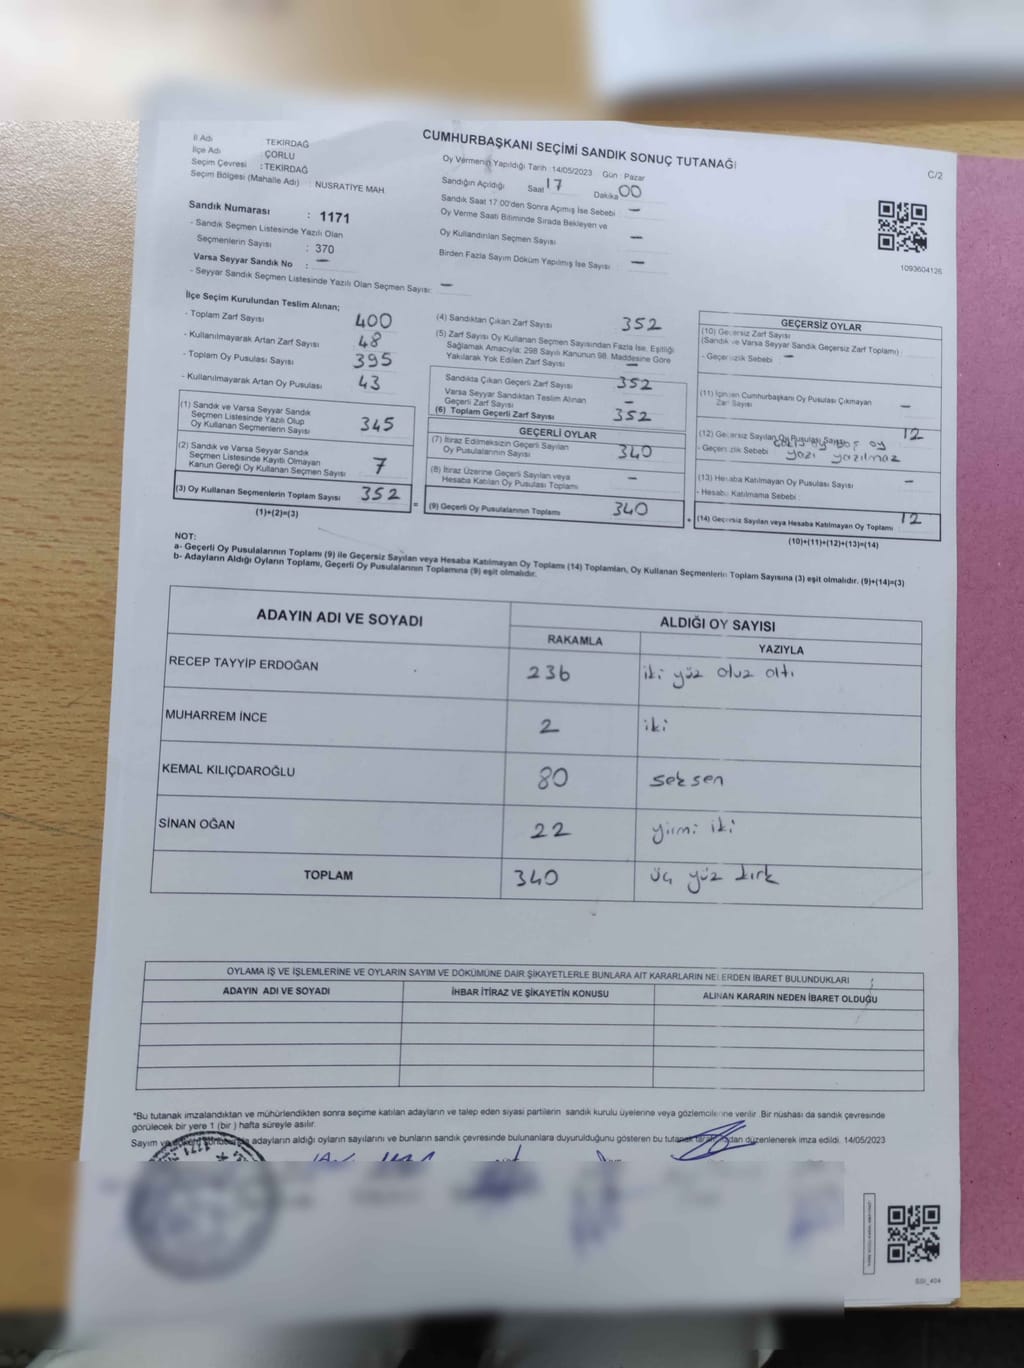 CUMHURBAŞKANI SEÇİMİ SANDIK SONUÇ TUTANAĞI
C/2
İl Adı TEKİRDAĞ
İlçe Adı : ÇORLU
Seçim Çevresi : TEKİRDAĞ
Seçim Bölgesi (Mahalle Adı) : NUSRATİYE MAH.
Oy Vermenin Yapıldığı Tarih : 14/05/2023 Gün : Pazar
Sandığın Açıldığı Saat 17 Dakika 00
Sandık Saat 17:00'den Sonra Açımış İse Sebebi : -
Oy Verme Saati Bitiminde Sırada Bekleyen ve
Oy Kullandırılan Seçmen Sayısı -
Birden Fazla Sayım Döküm Yapılmış İse Sayısı : -
1093604126
Sandık Numarası : 1171
- Sandık Seçmen Listesinde Yazılı Olan
Seçmenlerin Sayısı : 370
Varsa Seyyar Sandık No : -
- Seyyar Sandık Seçmen Listesinde Yazılı Olan Seçmen Sayısı: -
İlçe Seçim Kurulundan Teslim Alınan;
- Toplam Zarf Sayısı 400
- Kullanılmayarak Artan Zarf Sayısı 48
- Toplam Oy Pusulası Sayısı 395
- Kullanılmayarak Artan Oy Pusulası 43
(1) Sandık ve Varsa Seyyar Sandık
Seçmen Listesinde Yazılı Olup
Oy Kullanan Seçmenlerin Sayısı 345
(2) Sandık ve Varsa Seyyar Sandık
Seçmen Listesinde Kayıtlı Olmayan
Kanun Gereği Oy Kullanan Seçmen Sayısı 7
(3) Oy Kullanan Seçmenlerin Toplam Sayısı 352
(1)+(2)=(3)
(4) Sandıktan Çıkan Zarf Sayısı 352
(5) Zarf Sayısı Oy Kullanan Seçmen Sayısından Fazla İse, Eşitliği
Sağlamak Amacıyla; 298 Sayılı Kanunun 98. Maddesine Göre
Yakılarak Yok Edilen Zarf Sayısı -
Sandıkta Çıkan Geçerli Zarf Sayısı 352
Varsa Seyyar Sandıktan Teslim Alınan
Geçerli Zarf Sayısı -
(6) Toplam Geçerli Zarf Sayısı 352
GEÇERLİ OYLAR
(7) İtiraz Edilmeksizin Geçerli Sayılan
Oy Pusulalarının Sayısı 340
(8) İtiraz Üzerine Geçerli Sayılan veya
Hesaba Katılan Oy Pusulası Toplamı -
= (9) Geçerli Oy Pusulalarının Toplamı 340
GEÇERSİZ OYLAR
(10) Geçersiz Zarf Sayısı
(Sandık ve Varsa Seyyar Sandık Geçersiz Zarf Toplamı)
- Geçersizlik Sebebi : -
(11) İçinden Cumhurbaşkanı Oy Pusulası Çıkmayan
Zarf Sayısı -
(12) Geçersiz Sayılan Oy Pusulası Sayısı 12
- Geçersizlik Sebebi oy
yazı yazılmaz
(13) Hesaba Katılmayan Oy Pusulası Sayısı -
- Hesaba Katılmama Sebebi :
+ (14) Geçersiz Sayılan veya Hesaba Katılmayan Oy Toplamı 12
(10)+(11)+(12)+(13)=(14)
NOT:
a- Geçerli Oy Pusulalarının Toplamı (9) ile Geçersiz Sayılan veya Hesaba Katılmayan Oy Toplamı (14) Toplamları, Oy Kullanan Seçmenlerin Toplam Sayısına (3) eşit olmalıdır. (9)+(14)=(3)
b- Adayların Aldığı Oyların Toplamı, Geçerli Oy Pusulalarının Toplamına (9) eşit olmalıdır.
ADAYIN ADI VE SOYADI ALDIĞI OY SAYISI
RAKAMLA YAZIYLA
RECEP TAYYİP ERDOĞAN 236 iki yüz otuz altı
MUHARREM İNCE 2 iki
KEMAL KILIÇDAROĞLU 80 seksen
SİNAN OĞAN 22 yirmi iki
TOPLAM 340 üç yüz kırk
OYLAMA İŞ VE İŞLEMLERİNE VE OYLARIN SAYIM VE DÖKÜMÜNE DAİR ŞİKAYETLERLE BUNLARA AİT KARARLARIN NELERDEN İBARET BULUNDUKLARI
ADAYIN ADI VE SOYADI İHBAR İTİRAZ VE ŞİKAYETİN KONUSU ALINAN KARARIN NEDEN İBARET OLDUĞU
*Bu tutanak imzalandıktan ve mühürlendikten sonra seçime katılan adayların ve talep eden siyasi partilerin sandık kurulu üyelerine veya gözlemcilerine verilir. Bir nüshası da sandık çevresinde
görülecek bir yere 1 (bir ) hafta süreyle asılır.
Sayım ve adayların aldığı oyların sayılarını ve bunların sandık çevresinde bulunanlara duyurulduğunu gösteren bu tutanak düzenlenerek imza edildi. 14/05/2023
1171
SSI_404